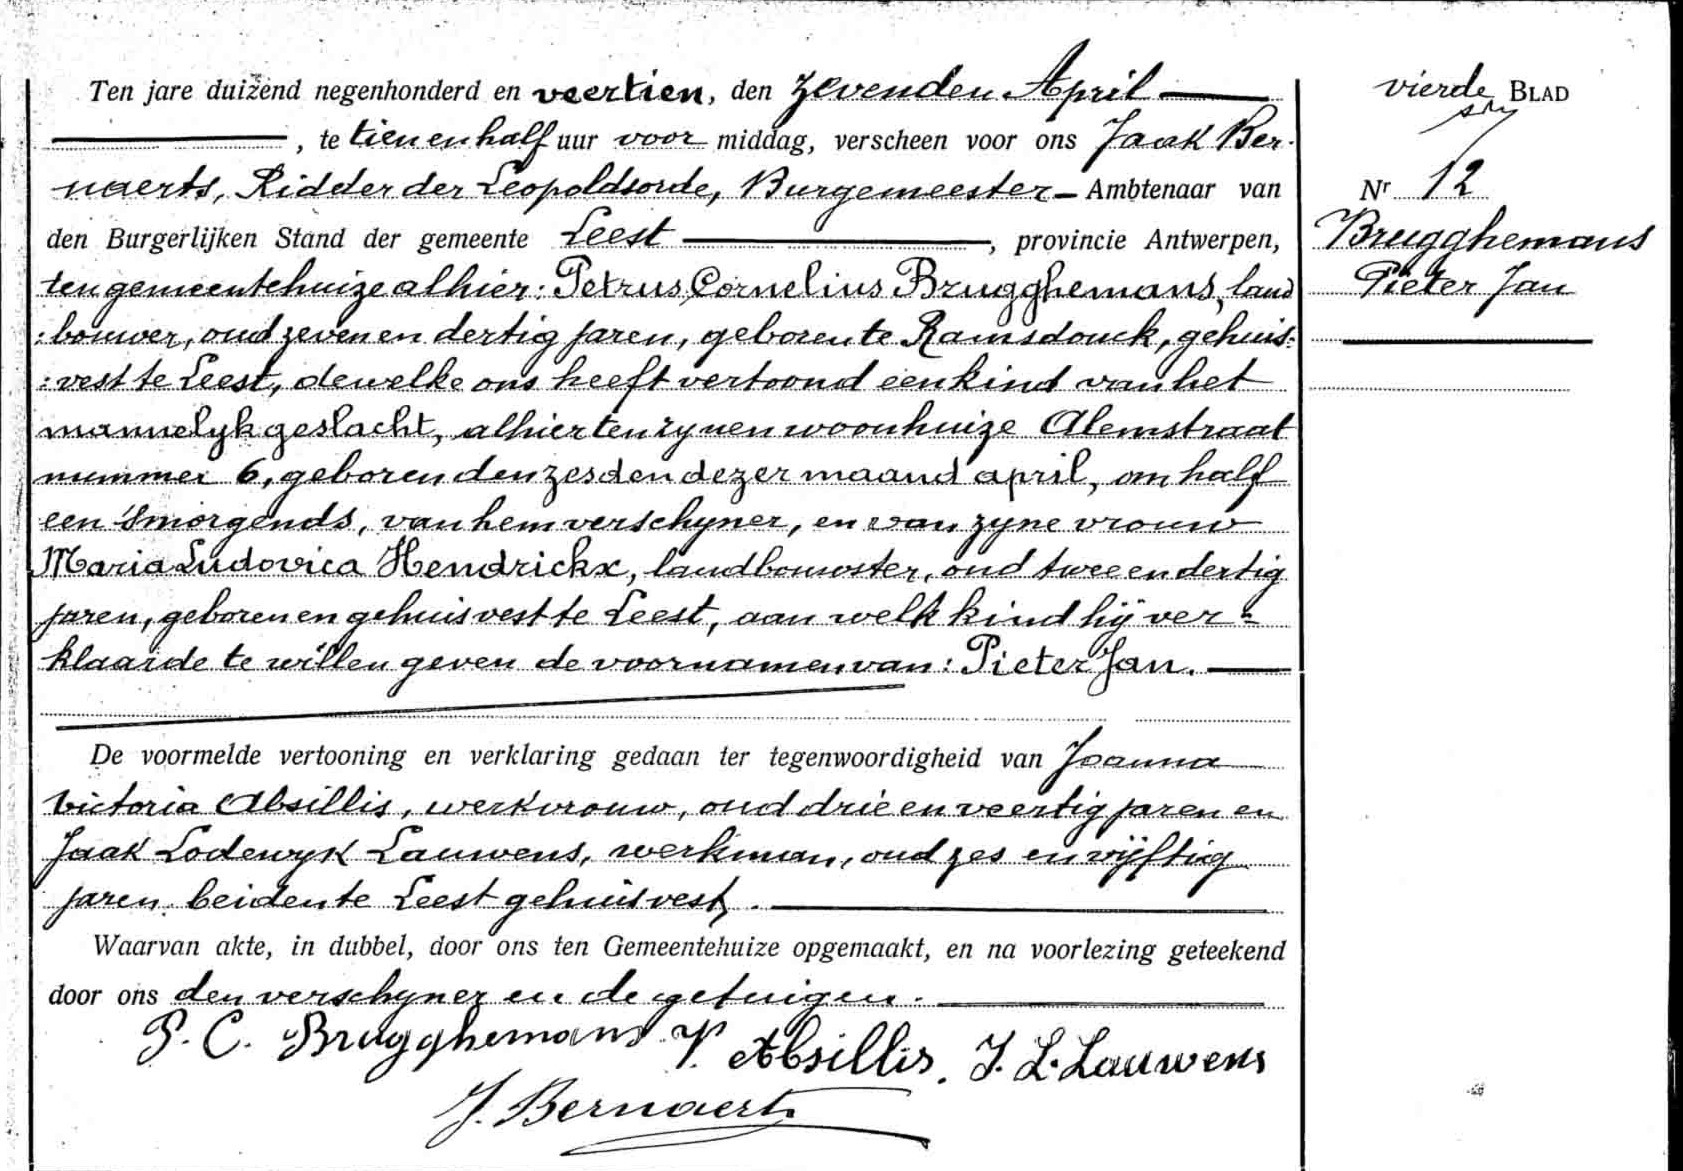 Ten jare duizend negenhonderd en veertien, den zevenden April
, te tien en half uur voor middag, verscheen voor ons Jaak Ber-
naerts, Ridder der Leopoldsorde, Burgemeester - Ambtenaar van
den Burgerlijken Stand der gemeente Leest, provincie Antwerpen,
ten gemeentehuize alhier: Petrus Cornelius Brugghemans, land
:bouwer, oud zeven en dertig jaren, geboren te Ramsdonck, gehuis:
:vest te Leest, dewelke ons heeft vertoond een kind van het
mannelyk geslacht, alhier ten zynen woonhuize Alemstraat
nummer 6, geboren den zesden dezer maand april, om half
een 'smorgends, van hem verschyner, en van zyne vrouw
Maria Ludovica Hendrickx, landbouwster, oud twee en dertig
jaren, geboren en gehuisvest te Leest, aan welk kind hij ver=
klaarde te willen geven de voornamen van: Pieter Jan.
De voormelde vertooning en verklaring gedaan ter tegenwoordigheid van Joanna
Victoria Absillis, werkvrouw, oud drie en veertig jaren en
Jaak Lodewyk Lauwens, werkman, oud zes en vijftig
jaren, beiden te Leest gehuisvest.
Waarvan akte, in dubbel, door ons ten Gemeentehuize opgemaakt, en na voorlezing geteekend
door ons den verschyner en de getuigen.
P. C. Brugghemans V. Absillis. J. L. Lauwens
J. Bernaerts
vierde BLAD
Nr 12
Brugghemans
Pieter Jan